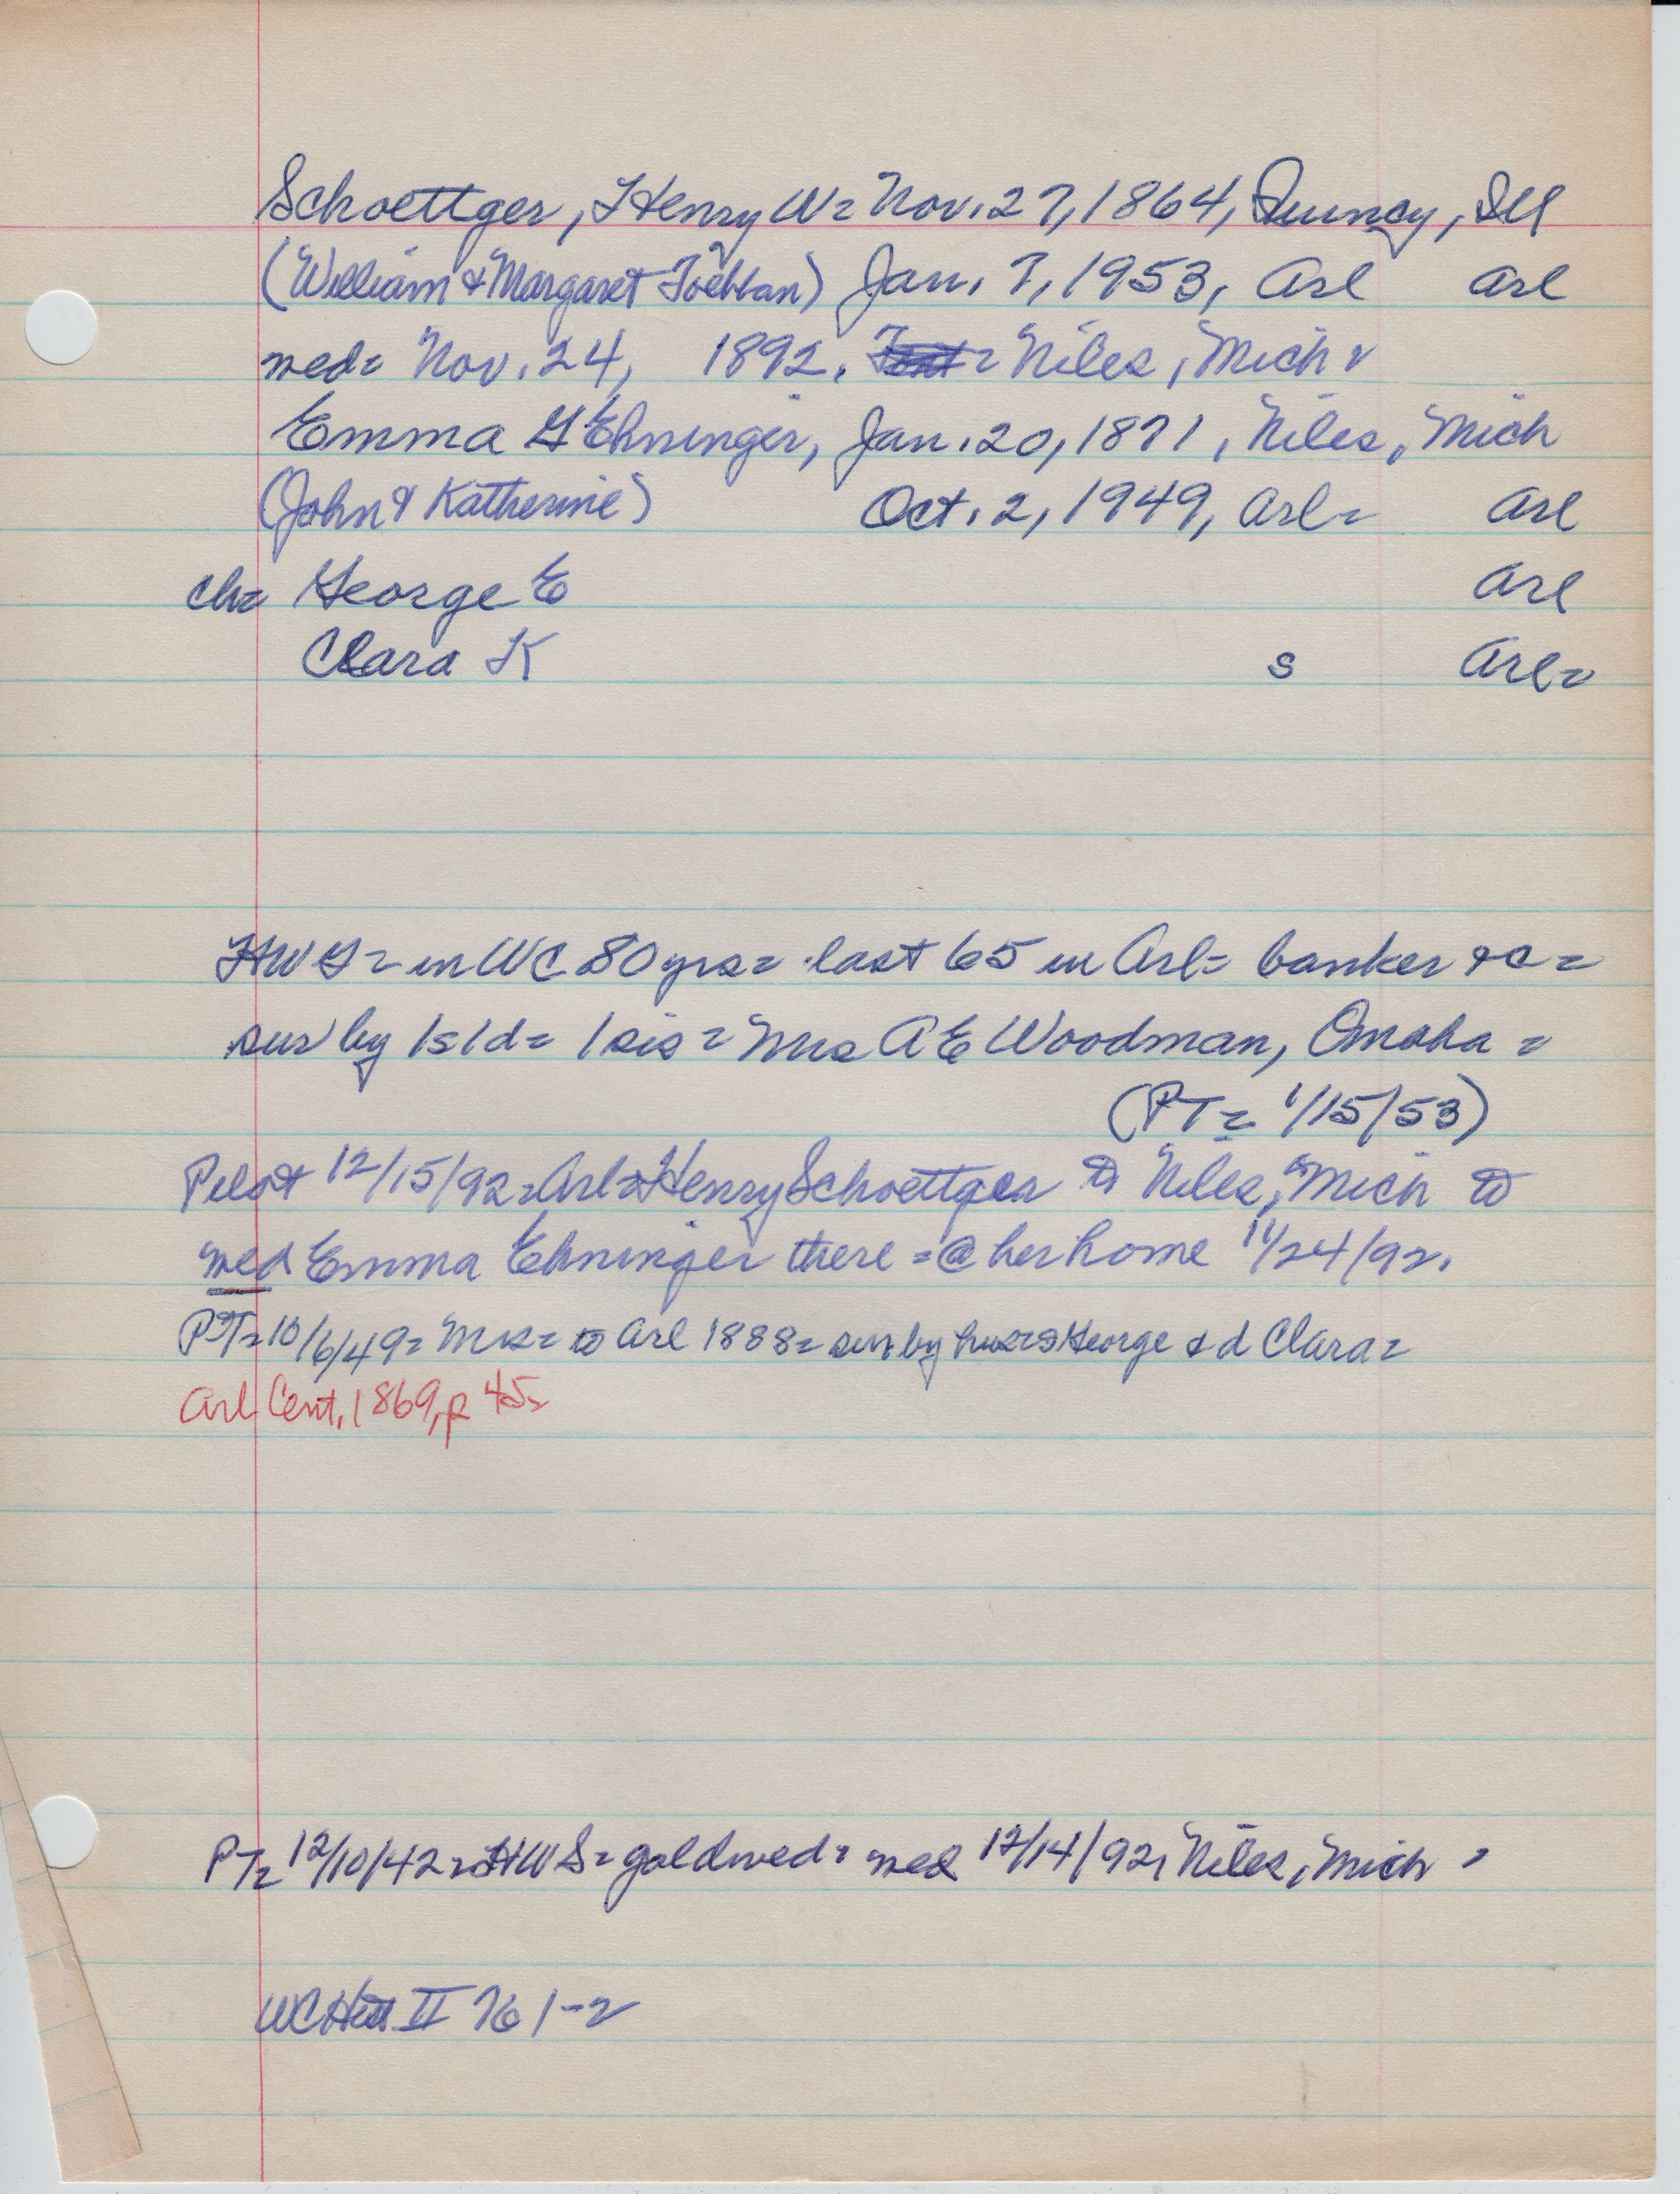 Schoettger, Henry W= Nov. 27, 1864, Quincy, Ill
(William & Margaret) Jan. 7, 1953, Arl Arl
med= Nov. 24, 1892. = Niles, Mich=
Emma G Ehninger, Jan. 20, 1871, Niles, Mich
(John & Katherine) Oct. 2, 1949, Arl= Arl
ch= George E Arl
Clara K s Arl=
HWS= in WC 80 yrs= last 65 in Arl= banker &c=
sur by 1s 1d= 1 sis= Mrs A E Woodman, Omaha=
(PT= 1/15/53)
Pilot 12/15/92= Arl= Henry Schoettger to Niles, Mich to
med Emma Ehninger there = @ her home 11/24/92.
PT= 10/6/49= Mrs= to Arl 1888= sur by hus= s George & d Clara=
Arl Cent, 1869, p 45=
PT= 12/10/42= HWS= gold wed= med 12/14/92, Niles, Mich=
WC Hist II 761-2